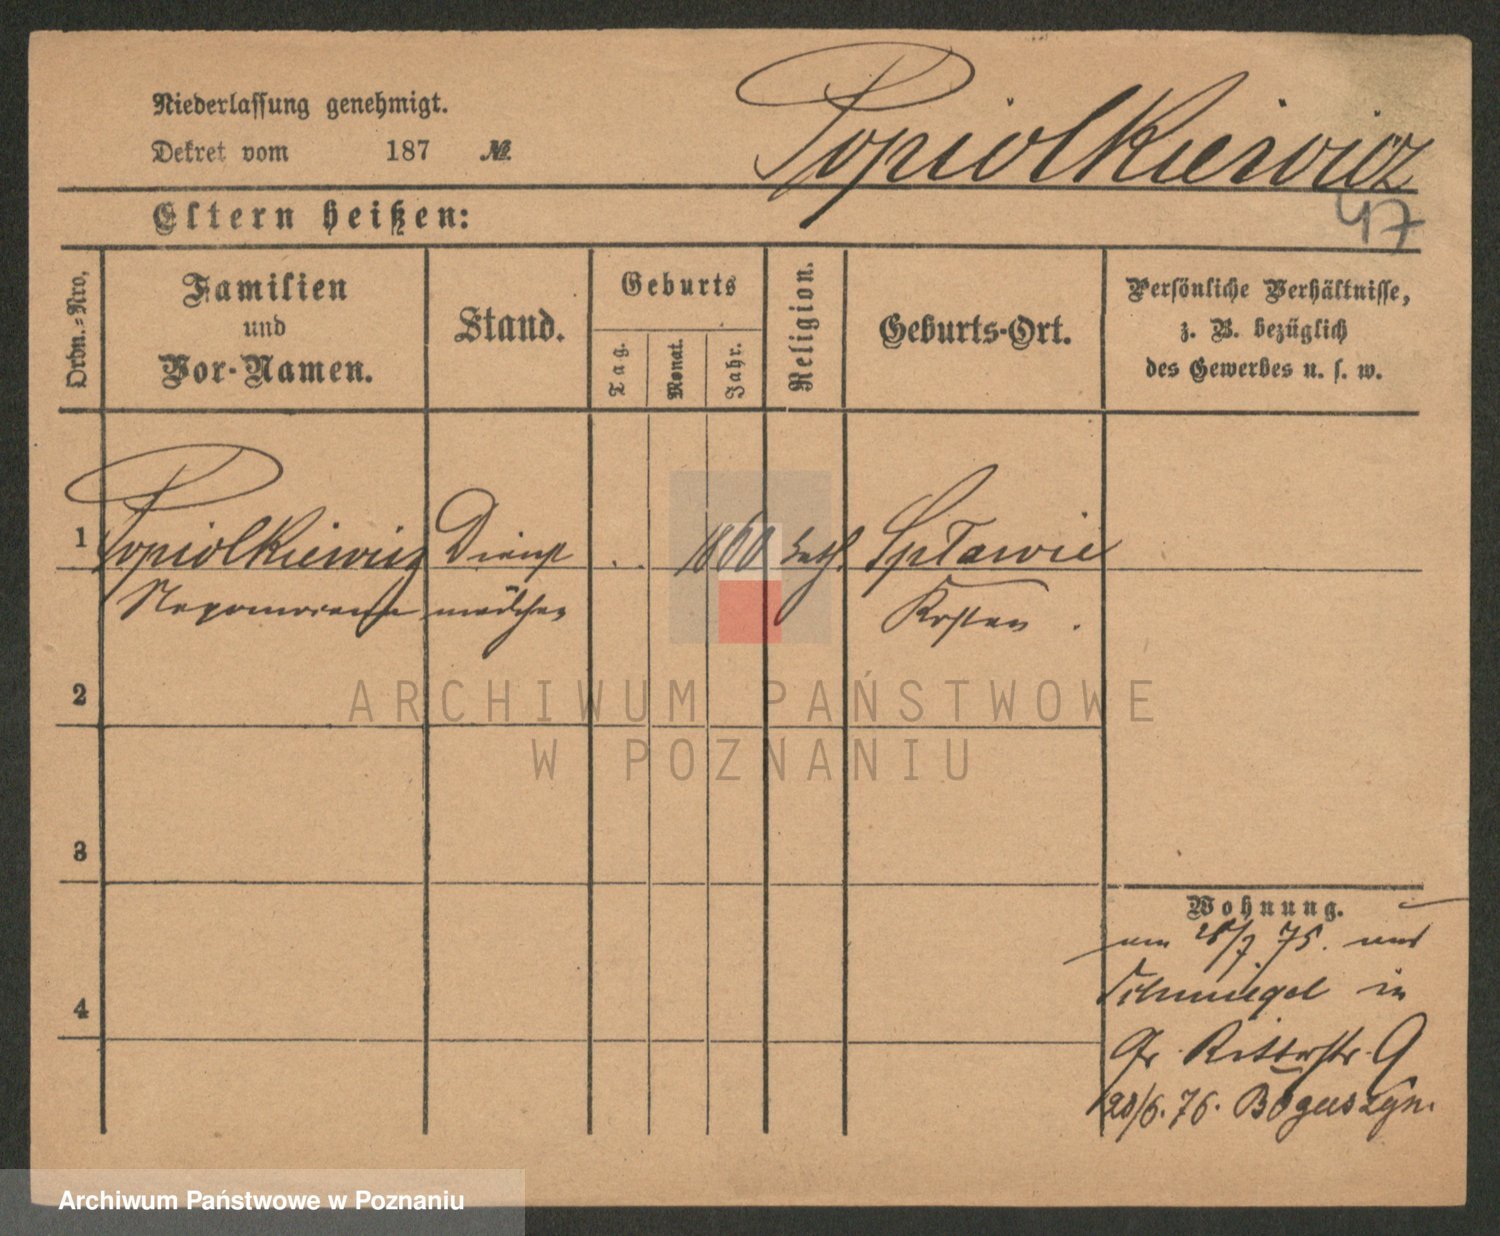 Popiolkiewicz
Niederlassung genehmigt.
Dekret vom 187 №
47
Eltern heißen:
Ordn.-Nro.
Familien
und
Vor-Namen.
Stand.
Geburts
Tag.
Monat.
Jahr.
Religion.
Geburts-Ort.
Persönliche Verhältnisse,
z. B. bezüglich
des Gewerbes u. s. w.
1 Popiolkiewicz Dienst . . 1860 kath. Spławie
Nepomucena mädchen Kosten .
2
3
4
Wohnung.
am 28/7. 75. aus
Schmiegel in
Gr. Ritterstr. 9
28/6. 76. Boguszyn.
ARCHIWUM PAŃSTWOWE
W POZNANIU
Archiwum Państwowe w Poznaniu